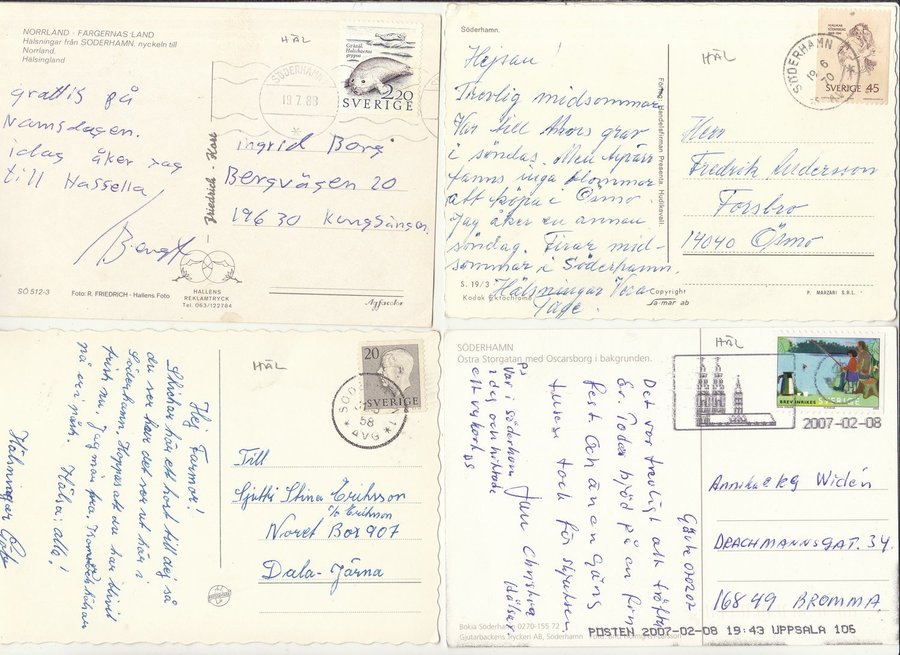 NORRLAND - FÄRGERNAS LAND
Hälsningar från SÖDERHAMN, nyckeln till
Norrland.
Hälsingland
HÄL
Gråsäl
Halichoerus
grypus
2.20
SVERIGE
SÖDERHAMN
19.7.88
grattis på
Namsdagen.
idag åker jag
till Hassela
Bengt
Friedrich - Kort
ingrid Borg
Bergvägen 20
196 30 Kungsängen.
HALLENS
REKLAMTRYCK
Tel. 063/122784
SÖ 512-3
Foto: R. FRIEDRICH - Hallens Foto
Agfacolor
Söderhamn.
HÄL
SÖDERHAMN
SVERIGE 45
Hejsan!
Trevlig midsommar
Var till Mors grav
i söndag. Men
fanns inga blommor
att köpa i Ösmo.
Jag åker en annan
söndag. Firar mid-
sommar i Söderhamn.
Hälsningar
Foto o. Handelsfirman Presenta. Hudiksvall.
Herr
Fredrik Andersson
Forsbro
14040 Ösmo
S. 19/3
Kodak Ektachrome
Copyright
Ja-mar ab
P. MARZARI S.R.L.
HÄL
20
SVERIGE
58
AVG
Hej Farmor!
Skickar här ett kort till dej så
du ser hur det ser ut här i
Söderhamn. Hoppas att du har blivit
frisk nu. Jag mår bra. Kommer kanske
på er i natt. Hälsa alla!
Hälsningar
Till
Stina Eriksson
c/o Eriksson
Noret Box 907
Dala-Järna
SÖDERHAMN
Östra Storgatan med Oscarsborg i bakgrunden.
HÄL
BREV INRIKES
SVERIGE
2007-02-08
Gävle 070207
Det var trevligt att träffa
Er. Toda bjöd på en fin
Fest. Och än en gång
tusen tack för skjutsen
Christina
PS
Var i Söderhamn
idag och hittade
ett vykort DS
Annika o Leg Widén
DRACHMANNSGAT. 34
168 49 BROMMA.
Bokia Söderhamn 0270-155 72
Gjutarbackens Tryckeri AB, Söderhamn
POSTEN 2007-02-08 19:43 UPPSALA 105